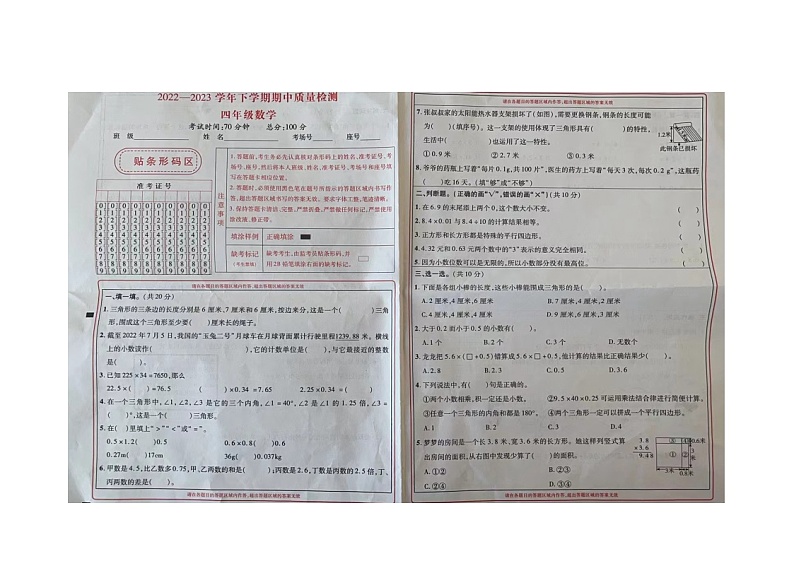 2022—2023学年下学期期中质量检测
四年级数学
考试时间:70分钟 总分:100分
班 级 姓 名 考场号 座号
贴条形码区
准考证号
注意事项
1.答题前,考生务必先认真核对条形码上的姓名,准考证号、考
场号、座号,然后将本人班级、姓名、准考证号、考场号和座号填
写在答题卡相应位置。
2.答题时,必须使用黑色笔在题号所指示的答题区域内书写作
答,超出答题区域书写的答案无效。要求字体工整,笔迹清晰。
3.保持答题卡清洁、完整,严禁折叠,严禁使用
涂改液、修正带。
填涂样例 正确填涂
缺考标记
(考生禁填)
缺考考生,由监考员贴条形码,并
用2B铅笔填涂左面的缺考标记。
请在各题目的答题区域内作答,超出答题区域的答案无效
一、填一填。(共20分)
1.三角形的三条边的长度分别是6厘米、7厘米和6厘米,按边来分,这是一个( )三角
形,围成这个三角形至少要( )厘米长的绳子。
2.截至2022年7月5日,我国的“玉兔二号”月球车在月球背面累计行驶里程1239.88米。横线
上的小数读作( ),它的计数单位是( ),与它最接近的整数
是( )。
3.已知225×34=7650,那么
22.5×( )=76.5 ( )×0.34=7.65 2.25×0.34=( )
4.在一个三角形中,∠1、∠2、∠3是它的三个内角,∠1=40°,∠2是∠1的1.25倍,∠3=
( )°,这是一个( )三角形。
5.在( )里填上“>”“<”或“=”。
0.5×1.2( )0.5 0.6×0.8( )0.6
0.27m( )17cm 36g( )0.037kg
6.甲数是4.5,比乙数多0.75,甲、乙两数的和是( );丙数是2.6,丁数是丙数的2.5倍,丁、
丙两数的差是( )。
请在各题目的答题区域内作答,超出答题区域的答案无效
请在各题目的答题区域内作答,超出答题区域的答案无效
7.张叔叔家的太阳能热水器支架损坏了(如图),需要更换钢条,钢条的长度可能
为( )(填序号)。这一支架的使用体现了三角形具有( )的特性。
生活中( )也运用了这一特性。
①0.9米 ②2.7米 ③0.3米
1.2米
此钢条已损坏
8.爷爷的药瓶上写着“每片0.1g,共100片”,医生的药方上写着“每天3次,每次0.2g”,这瓶药
( )吃16天。(填“够”或“不够”)
二、判断题。(正确的画“√”,错误的画“×”)(共10分)
1.在6.9的末尾添上两个0,这个数大小不变。 ( )
2.8.4×0.01与8.4÷10的计算结果相等。 ( )
3.正方形和长方形都是特殊的平行四边形。 ( )
4.4.32元和0.63元两个数中的“3”表示的意义完全相同。 ( )
5.因为小数位数可以是无限的,所以小数部分没有最高位。 ( )
三、选一选。(共10分)
1.下面是各组小棒的长度,这些小棒能围成三角形的是( )。
A.2厘米,4厘米,6厘米 B.7厘米,2厘米,4厘米
C.4厘米,4厘米,4厘米 D.9厘米,6厘米,3厘米
2.大于0.2而小于0.5的小数有( )。
A.2个 B.3个 C.1个 D.无数个
3.龙龙把5.6×(□+0.5)错算成5.6×□+0.5,他计算的结果比正确结果少( )。
A.2.8 B.2.3 C.3.3 D.5.6
4.下列说法中,有( )句是正确的。
①两个小数相乘,积一定还是小数。 ②9.5×40×0.25可运用乘法结合律进行简便计算。
③任意一个三角形的内角和都是180°。 ④两个三角形一定可以拼成一个平行四边形。
A.1 B.2 C.3 D.4
5.梦梦的房间是一个长3.8米、宽3.6米的长方形。她这样列竖式算
出房间的面积,从右图中发现少算了( )的面积。
A.①② B.②③
C.②④ D.③④
3.8
×3.6
9.48
③ ④ 0.6米
① ② 3米
3米 0.8米
请在各题目的答题区域内作答,超出答题区域的答案无效